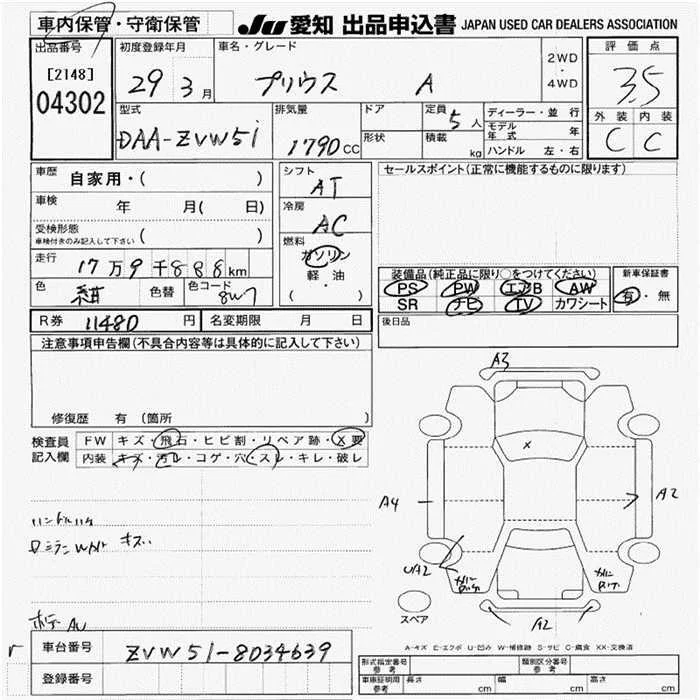 車内保管・守衛保管
JU 愛知 出品申込書 JAPAN USED CAR DEALERS ASSOCIATION
出品番号
[2148]
04302
初度登録年月
29 3月
車名・グレード
プリウス A
2WD
・
4WD
評価点
3.5
外装 内装
C C
型式
DAA-ZVW51
排気量
1790CC
ドア
形状
定員 5人
積載 kg
ディーラー・並行
モデル年式 年
ハンドル 左・右
車歴 自家用・( )
車検 年 月( 日)
受検形態
車検付きのみ記入して下さい ( )
走行 17万9千888km
色 紺 色替 色コード 8W7
R券 11480円 名変期限 月 日
シフト
AT
冷房
AC
燃料
ガソリン
軽・油
( ・ )
セールスポイント(正常に機能するものに限ります)
装備品(純正品に限り○をつけてください)
PS PW エアB AW
SR ナビ TV カワシート
新車保証書
有・無
後日品
注意事項申告欄(不具合内容等は具体的に記入して下さい)
修復歴 有(箇所 )
検査員 FW キズ・飛石・ヒビ割・リペア跡・X要
記入欄 内装 キズ・汚レ・コゲ・穴・スレ・キレ・破レ
A3
X
A4
A2
UA2
A2
スペア
A-キズ E-エクボ U-凹み W-補修跡 S-サビ C-腐食 XX-交換済
車台番号 ZVW51-8034639
登録番号
形式指定番号 参考
類別区分番号 参考
車庫証明用 参考 長さ cm 幅 cm 高さ cm